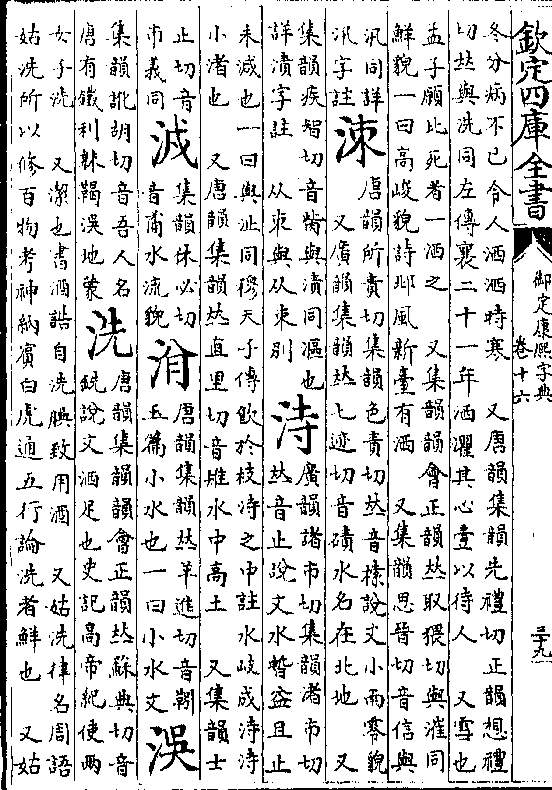 欽定四庫全書
御定康熙字典
卷十六
三十九
冬分病不已令人洒洒時寒　又唐韻集韻先禮切正韻想禮
切𠀤與洗同左傳襄二十一年洒濯其心壹以待人　又雪也
孟子願比死者一洒之　又集韻韻會正韻𠀤取猥切與漼同
鮮貌一曰高峻貌詩邶風新臺有洒　又集韻思晉切音信與
汛同詳
汛字註
洓
唐韻所責切集韻色責切𠀤音說文小雨零貌
又廣韻集韻𠀤七迹切音磧水名在北地　又
集韻疾智切音與漬同漚也
詳漬字註　从朿與从束別
洔
廣韻諸市切集韻渚市切
𠀤音止說文水暫益且止
未減也一曰與沚同穆天子傳飲於枝洔之中註水岐成洔洔
小渚也　又唐韻集韻𠀤直里切音雉水中高土　又集韻士
止切音
市義同
㳚
集韻休必切
音矞水流貌
㳙
唐韻集韻𠀤羊進切音靷
玉篇小水也一曰小水文
洖
集韻訛胡切音吾人名
唐有鐵利靺鞨洖地蒙
洗
唐韻集韻韻會正韻𠀤蘇典切音
銑說文洒足也史記高帝紀使兩
女子洗　又潔也書酒誥自洗腆致用酒　又姑洗律名周語
姑洗所以修百物考神納賓白虎通五行論洗者鮮也　又姑